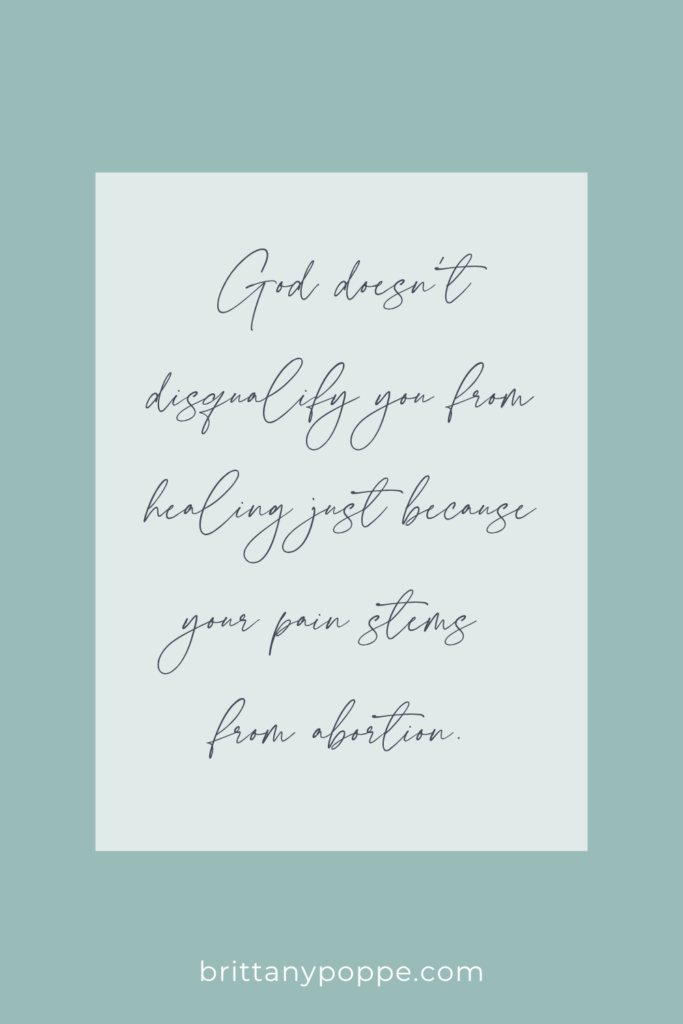 God doesn't
disqualify you from
healing just because
your pain stems
from abortion.
brittanypoppe.com